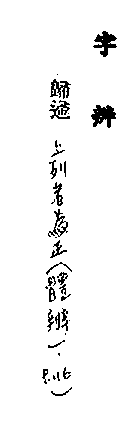 字辨
歸𨓜 上列者為正(體辨一·P.16)